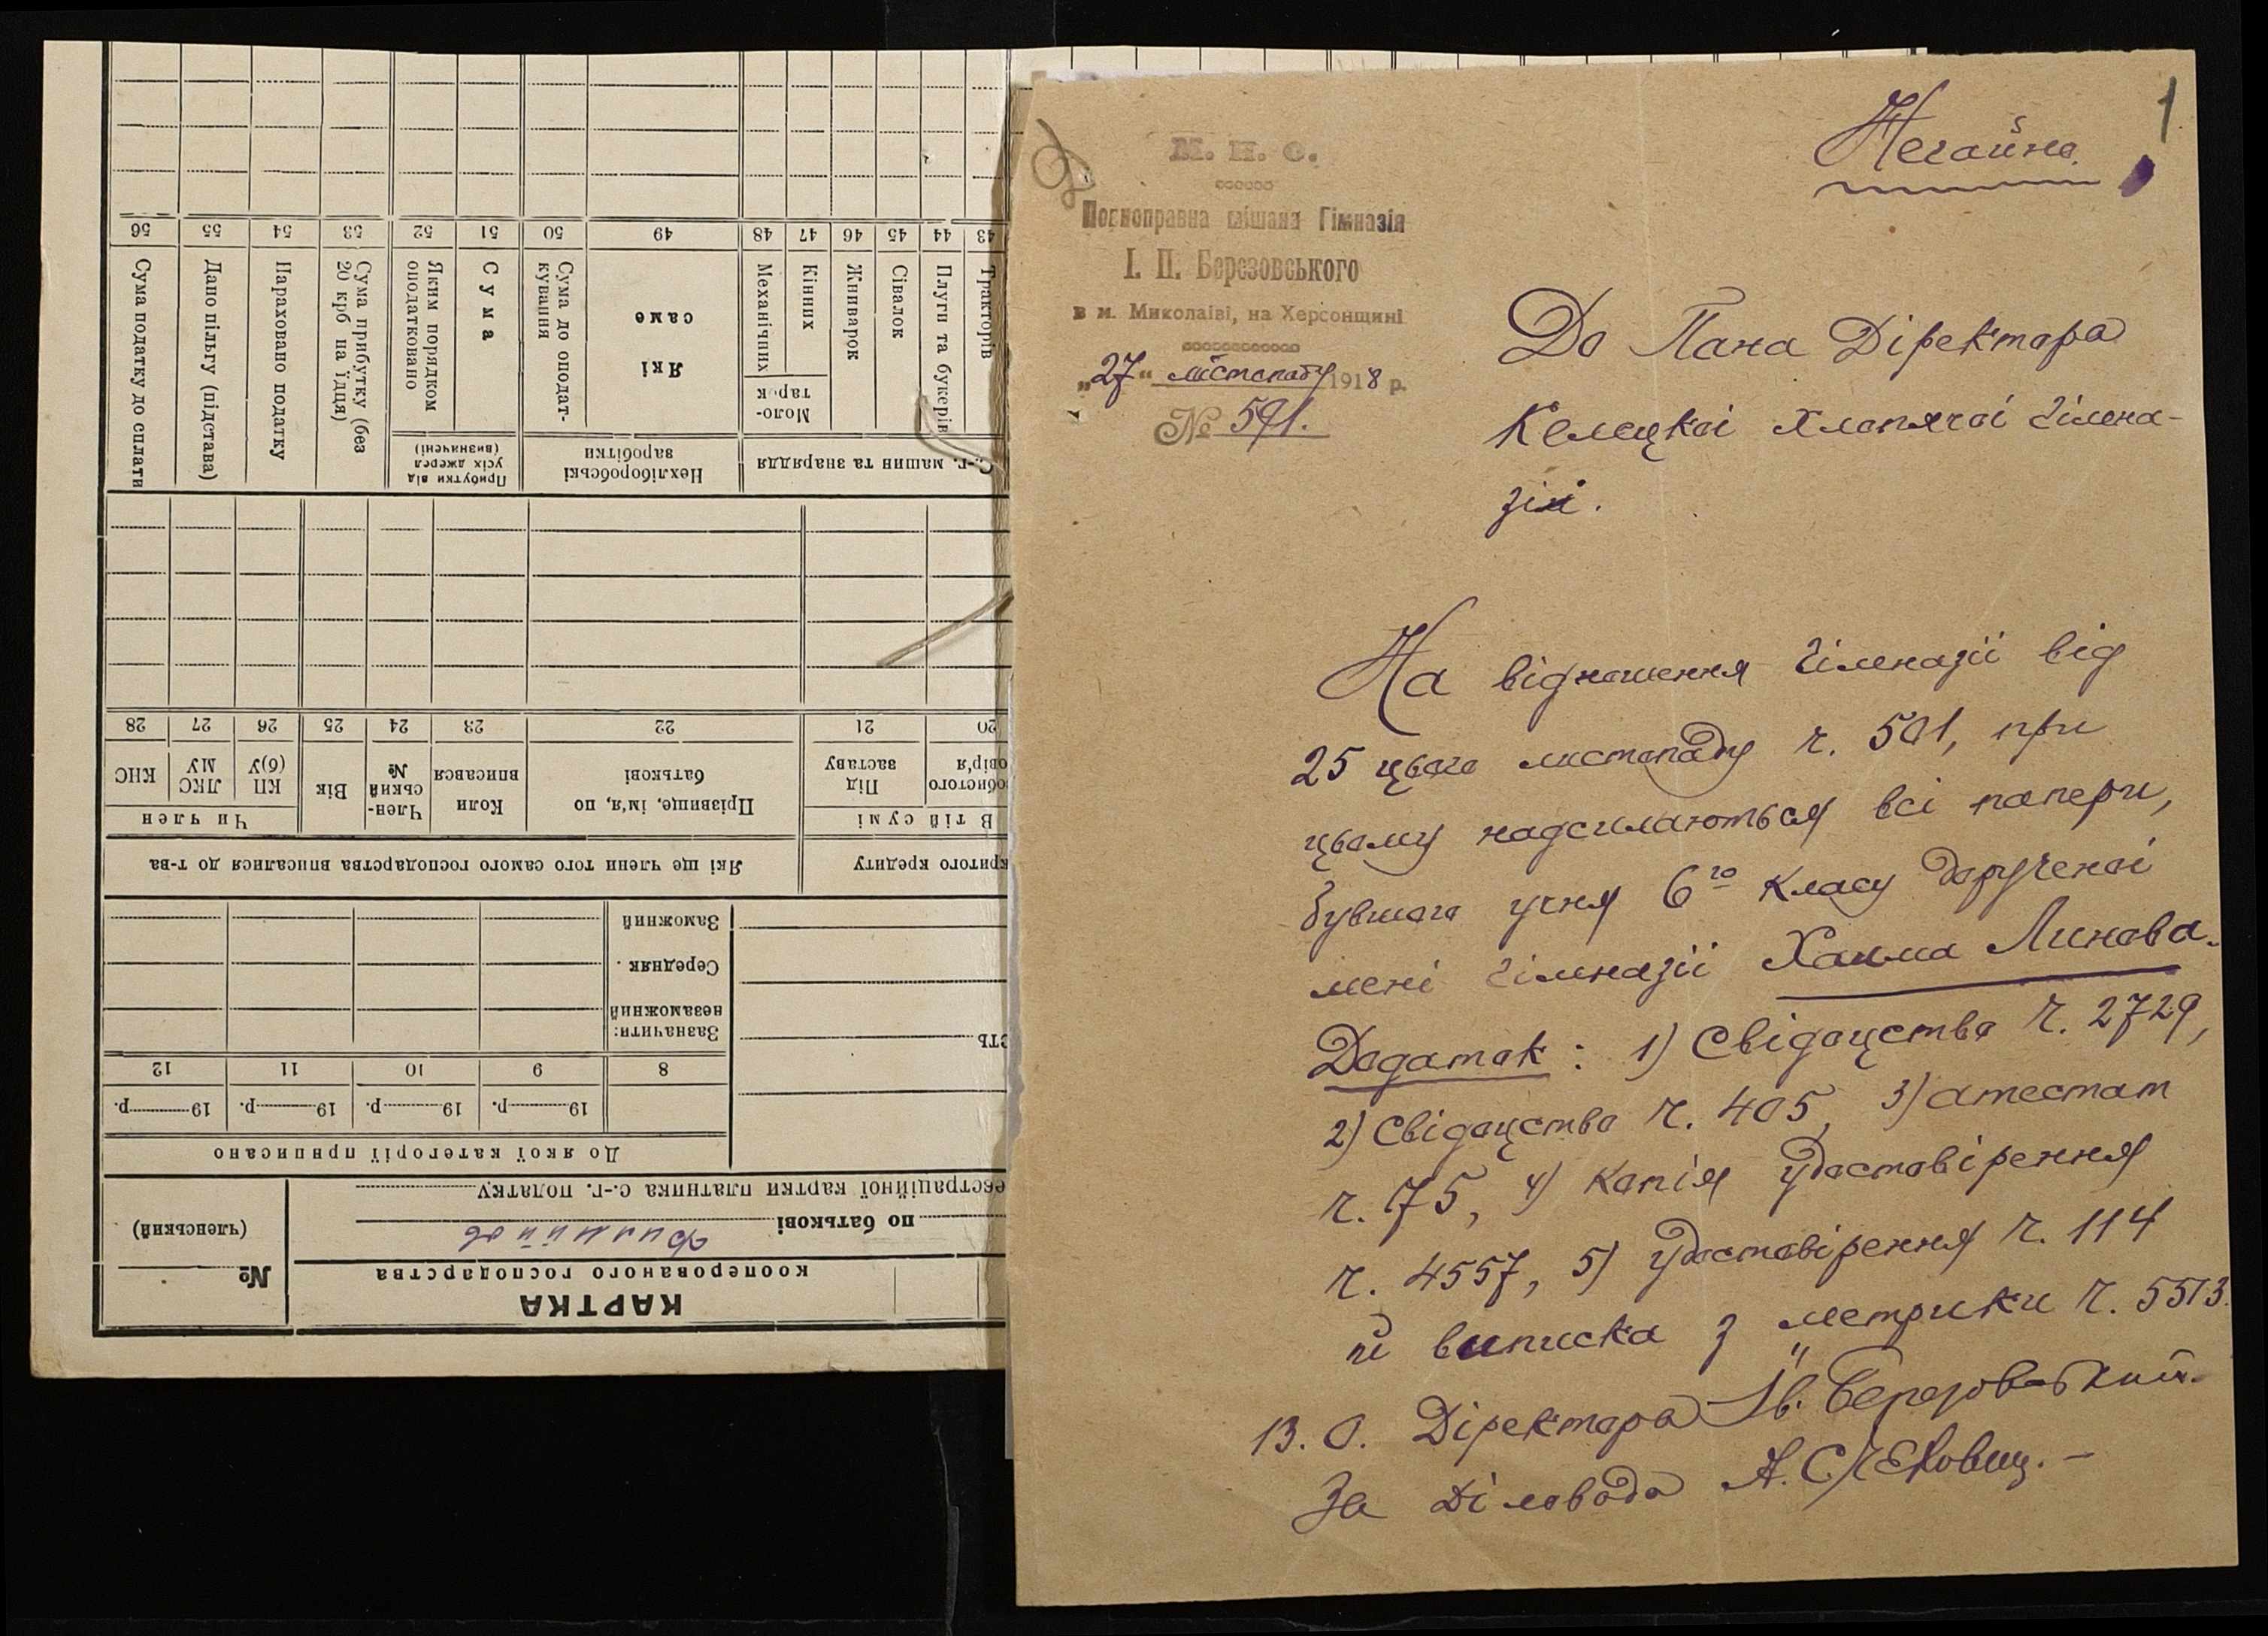 1
Негайно.
М. Н. О.
Повноправна мішана Гімназія
І. П. Березовського
в м. Миколаіві, на Херсонщині
„27“ лістопаду 1918 р.
№ 591.
До Пана Діректора
Келецкоі Хлопячоі Гімна-
зіі.
На відношення Гімназіі від
25 цього листопаду ч. 501, при
цьому надсилаються всі папери,
бувшого учня 6го класу дорученоі
мені Гімназіі Хаима Линова.
Додаток: 1) Свідоцство ч. 2729,
2) Свідоцство ч. 405, 3) атестат
ч. 175, 4) копія удостовірення
ч. 4557, 5) удостовірення ч. 114
й виписка з метрики ч. 5513.
В. О. Діректора Ів. Березовський.
За Діловода А.
КАРТКА
кооперованого господарства
№
(членський)
по батькові
еєстраційної картки платника с.-г. податку
До якої категорії приписано
19 р. 19 р. 19 р. 19 р.
8 9 10 11 12
Зазначити:
незаможний
Середняк
Заможний
критого кредиту
Які ще члени того самого господарства вписалися до т-ва
В тій сумі
Під заставу
Прізвище, ім'я, по батькові
Коли вписався
Член-ський №
Вік
Чи член
КП (б)У
ЛКС МУ
КНС
20 21 22 23 24 25 26 27 28
С.-г. машин та знаряддя
Нехліборобські заробітки
Прибутки від усіх джерел (визначені)
Тракторів
Плуги та букерів
Сівалок
Жниварок
Моло-тарок
Кінних
Механічних
Які саме
Сума до оподат-кування
Сума
Яким порядком оподатковано
Сума прибутку (без 20 крб на їдця)
Нараховано податку
Дано пільгу (підстава)
Сума податку до сплати
43 44 45 46 47 48 49 50 51 52 53 54 55 56